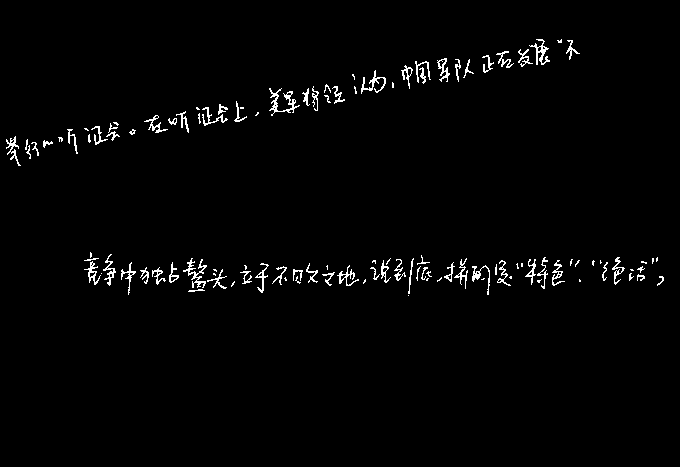 举行听证会。在听证会上，美军将领认为，中国军队正在发展“不
竞争中独占鳌头，立于不败之地，说到底，拼的是“特色”、“绝活”，